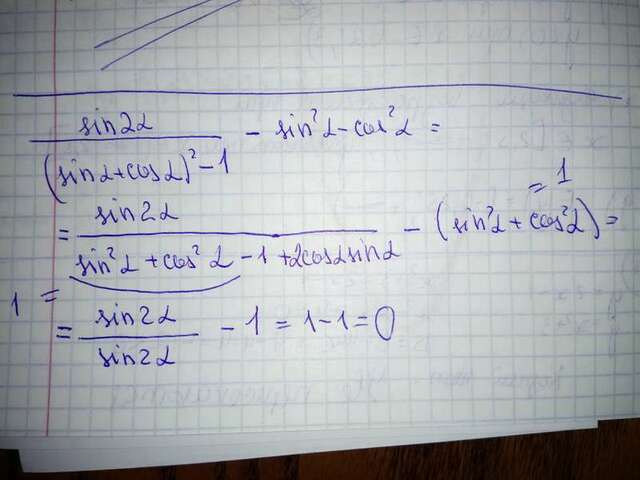 sin2α / (sinα+cosα)² - 1 - sin²α - cos²α =
= sin2α / sin²α + cos²α - 1 + 2cosαsinα - (sin²α + cos²α) =
= 1
1 =
= sin2α / sin2α - 1 = 1 - 1 = 0